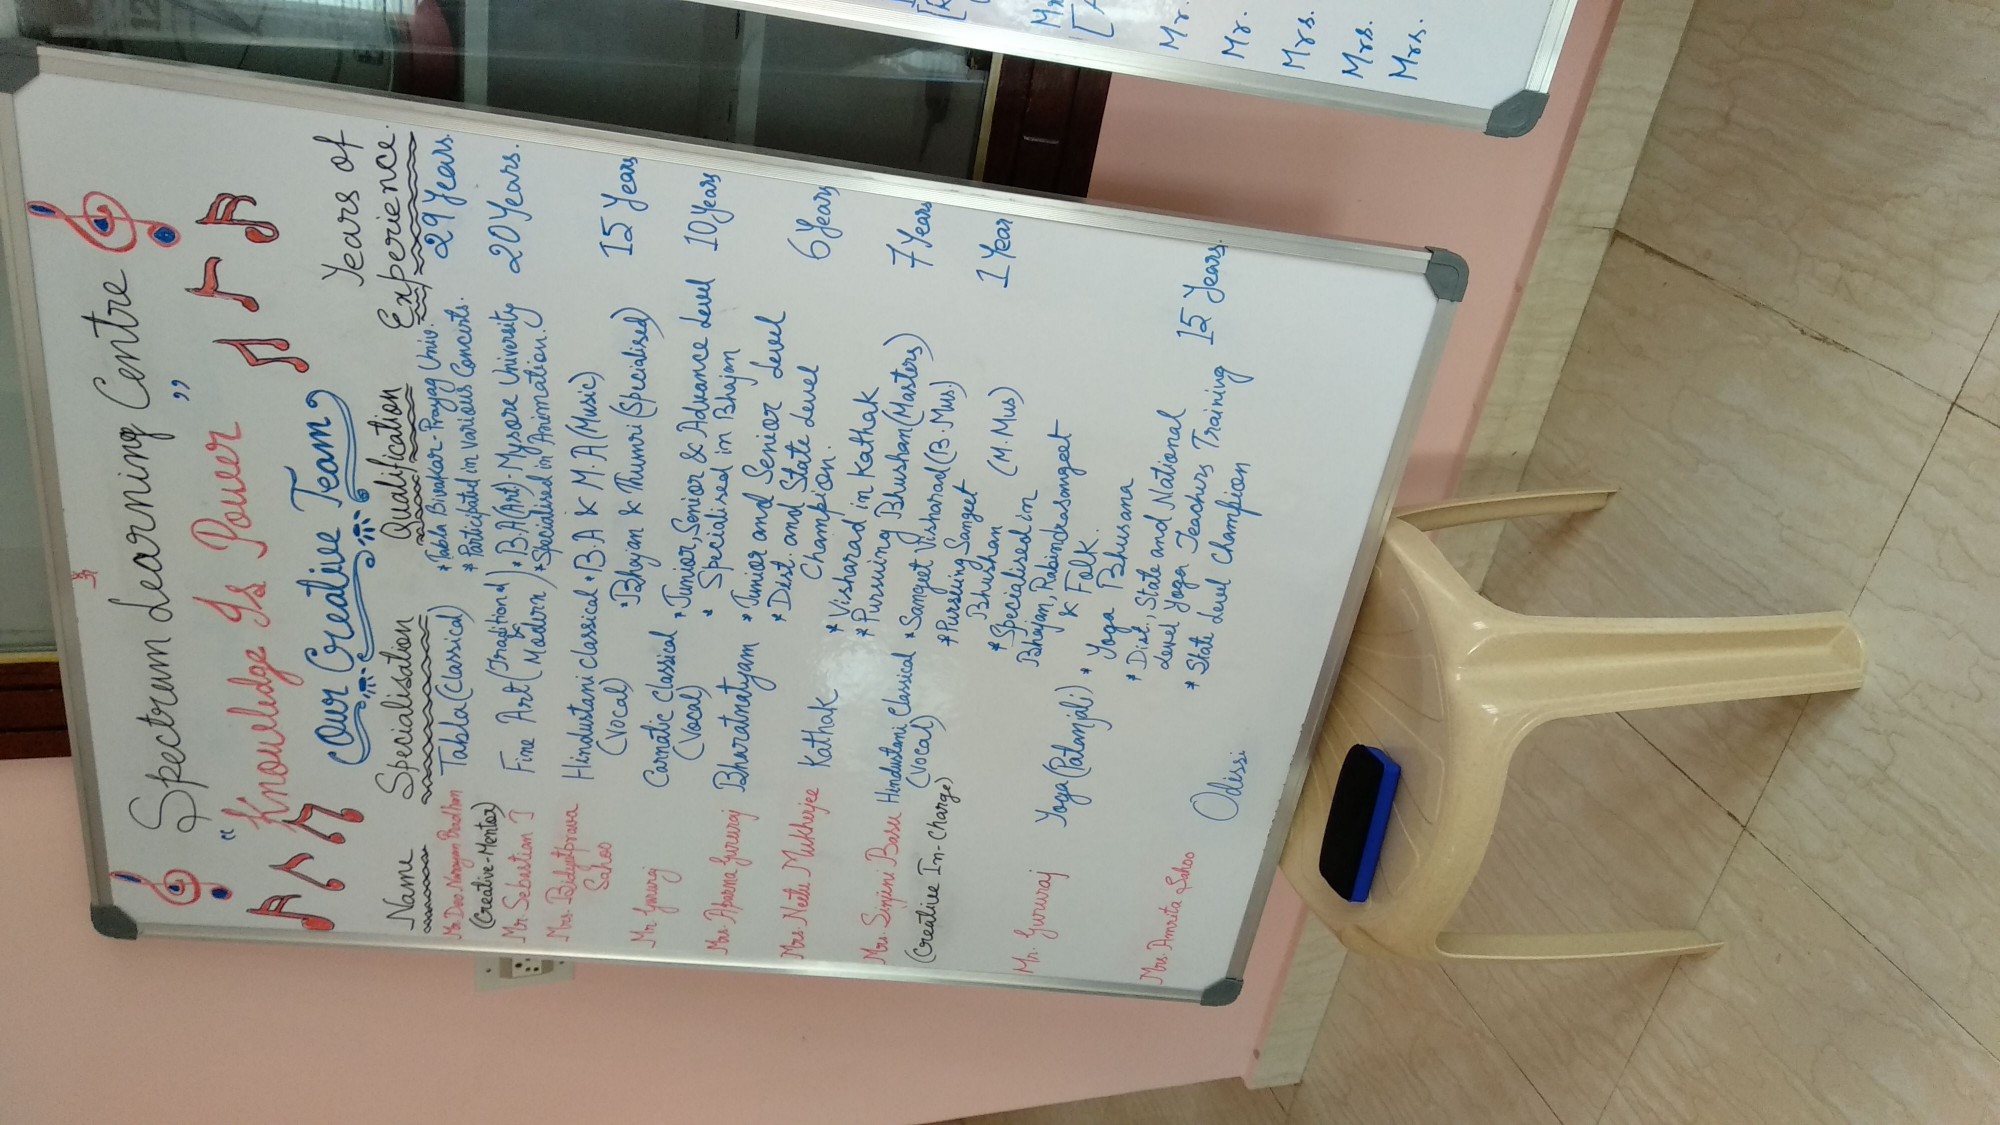 ॐ
Spectrum Learning Centre
"Knowledge Is Power"
Our Creative Team
Name Specialisation Qualification Years of Experience
Mr. Deo Narayan Pradhan Tabla (Classical) * Tabla Bivakar - Prayag Univ. 29 Years.
(Creative-Mentor) * Participated in various Concerts.
Mr Sebastian J Fine Art (Traditional & Modern) * B.A (Art) - Mysore University 20 Years.
* Specialised in Animation.
Mrs. Bidyutprava Sahoo Hindustani Classical (Vocal) * B.A & M.A (Music) 15 Years
* Bhajan & Thumri (Specialised)
Mr Gururaj Carnatic Classical (Vocal) * Junior, Senior & Advance Level 10 Years
* Specialised in Bhajan
Mrs. Aparna Gururaj Bharatnatyam * Junior and Senior Level 6 Years
* Dist. and State Level
Champion.
Mrs. Neetu Mukherjee Kathak * Visharad in Kathak 7 Years
* Pursuing Bhushan (Masters)
Mrs Sinjini Basu Hindustani Classical (Vocal) * Sangeet Visharad (B.Mus.) 1 Year
(Creative In-Charge) * Pursuing Sangeet
Bhushan (M.Mus)
* Specialised in
Bhajan, Rabindrasangeet
& Folk.
Mr. Gururaj Yoga (Patanjali) * Yoga Bhusana
* Dist., State and National
Level Yoga Teachers Training 15 Years.
* State Level Champion
Mrs. Amrita Sahoo Odissi
Mr.
Mr.
Mrs.
Mrs.
Mrs.
12